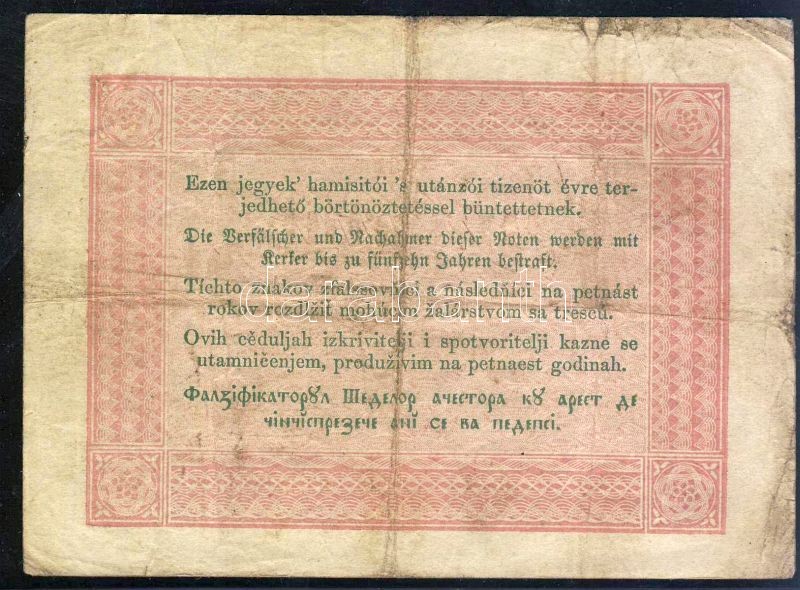 Ezen jegyek' hamisitói 's utánzói tizenöt évre ter-
jedhető börtönöztetéssel büntettetnek.
Die Verfälscher und Nachahmer dieser Noten werden mit
Kerker bis zu fünfzehn Jahren bestraft.
Tíchto znakov sfalssovníci a následńíci na petnást
rokov rozdlžiť mohúcím žalárstvom sa trescú.
Ovih cěduljah izkrivitelji i spotvoritelji kazne se
utamničenjem, produživim na petnaest godinah.
Фалзіфікаторꙋл Шеделор ачестора кꙋ арест де
чінчіспрезече ані се ва педепсі.
darabanth